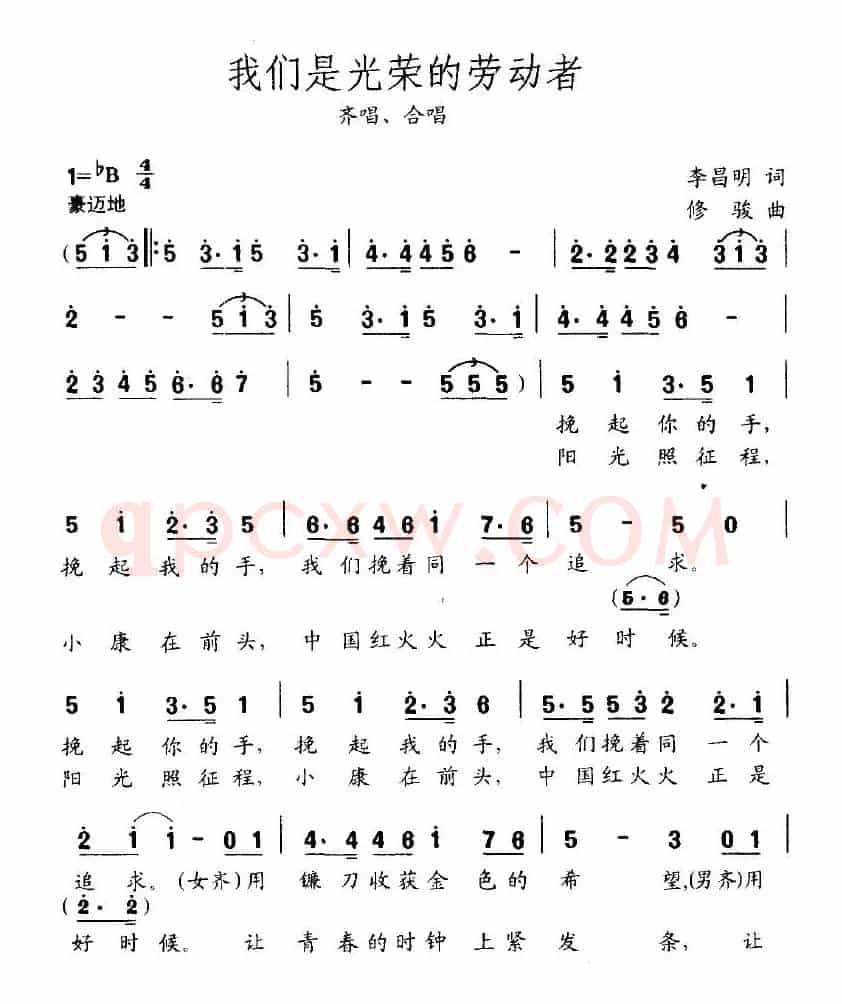 我们是光荣的劳动者
齐唱、合唱
1=♭B 4/4
李昌明 词
豪迈地
修 骏 曲
(5 i̇ 3̇ ‖: 5̇ 3̇· i̇ 5̇ 3̇· i̇ | 4̇· 4̇ 4̇ 5̇ 6̇ - | 2̇· 2̇ 2̇ 3̇ 4̇ 3̇ i̇ 3̇ |
2̇ - - 5 i̇ 3̇ | 5̇ 3̇· i̇ 5̇ 3̇· i̇ | 4̇· 4̇ 4̇ 5̇ 6̇ - |
2̇ 3̇ 4̇ 5̇ 6̇· 6̇ 7̇ | 5̇ - - 5 5 5) | 5 i̇ 3· 5 1 |
挽 起 你 的 手,
阳 光 照 征 程,
5 i̇ 2̇· 3̇ 5 | 6· 6 4 6 i̇ 7· 6 | 5 - 5 0 |
qpcxw.com
挽 起 我 的 手, 我 们 挽 着 同 一 个 追 求。
(5· 6)
小 康 在 前 头, 中 国 红 火 火 正 是 好 时 候。
5 i̇ 3· 5 1 | 5 i̇ 2̇· 3̇ 6 | 5· 5 5 3̇ 2̇ 2̇· i̇ |
挽 起 你 的 手, 挽 起 我 的 手, 我 们 挽 着 同 一 个
阳 光 照 征 程, 小 康 在 前 头, 中 国 红 火 火 正 是
2̇ i̇ i̇ - 0 1 | 4· 4 4 6 i̇ 7 6 | 5 - 3 0 1 |
追 求。 (女齐)用 镰 刀 收 获 金 色 的 希 望,(男齐)用
(2̇· 2̇)
好 时 候。 让 青 春 的 时 钟 上 紧 发 条, 让